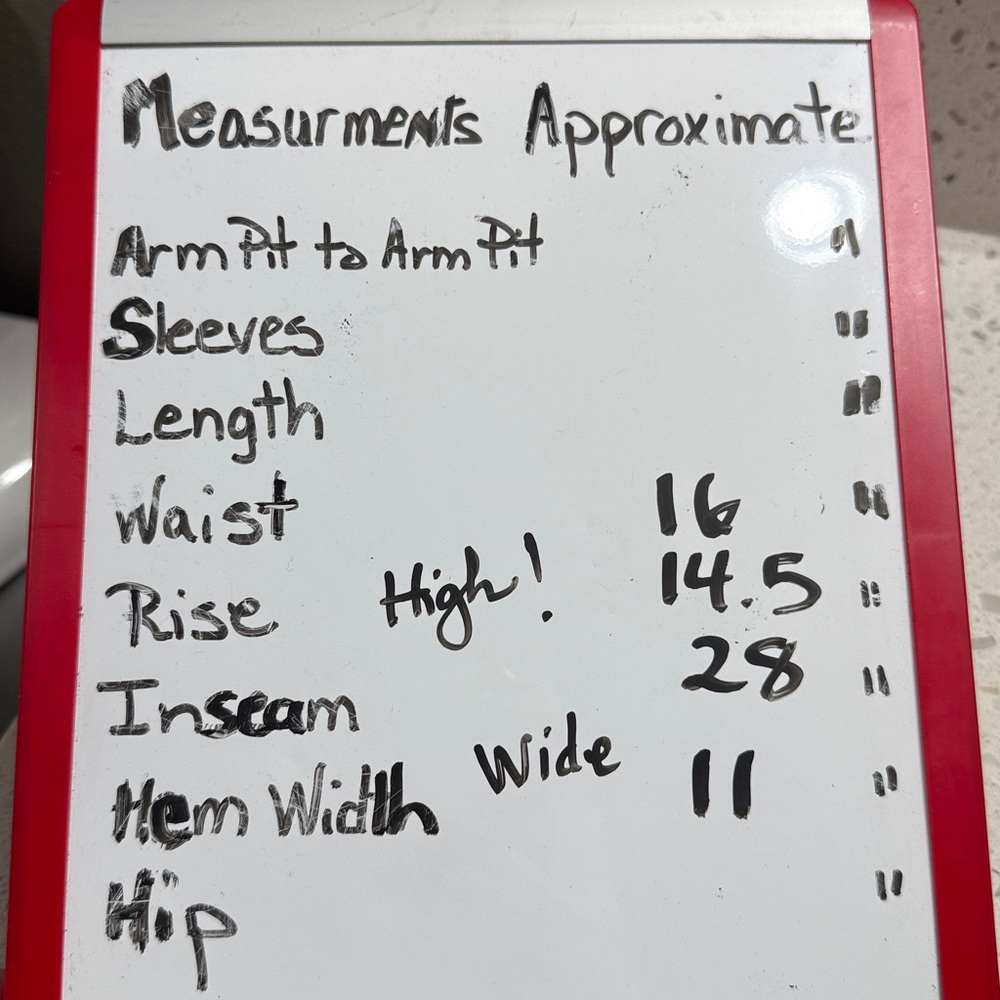 Measurments Approximate
Arm Pit to Arm Pit "
Sleeves "
Length "
Waist 16 "
Rise High! 14.5 "
Inseam 28 "
Hem Width Wide 11 "
Hip "